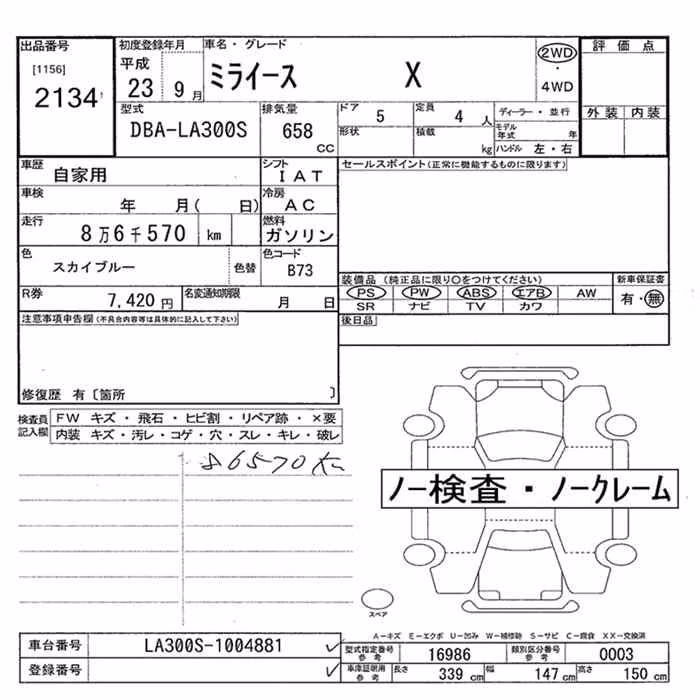 出品番号 初度登録年月 車名・グレード 評価点
[1156] 平成 2WD
2134 23 9月 ミライース X ・
4WD
型式 排気量 ドア 定員 ディーラー・並行 外装 内装
DBA-LA300S 658 CC 5 4 人 モデル年式 年
形状 積載 kg ハンドル 左・右
車歴 シフト セールスポイント(正常に機能するものに限ります)
自家用 IAT
車検 冷房
年 月( 日) AC
走行 燃料
8万6千570 km ガソリン
色 色コード
スカイブルー 色替 B73
装備品(純正品に限り○をつけてください) 新車保証書
R券 名変通知期限 PS PW ABS エアB AW 有・無
7,420円 月 日 SR ナビ TV カワ
注意事項申告欄(不具合内容等は具体的に記入して下さい) 後日品
修復歴 有〔箇所 〕
検査員 FW キズ・飛石・ヒビ割・リペア跡・×要
記入欄 内装 キズ・汚レ・コゲ・穴・スレ・キレ・破レ
86570km
ノー検査・ノークレーム
スペア
A-キズ E-エクボ U-凹み W-補修跡 S-サビ C-腐食 XX-交換済
車台番号 LA300S-1004881 型式指定番号参考 16986 類別区分番号参考 0003
登録番号 車庫証明用参考 長さ 339 cm 幅 147 cm 高さ 150 cm